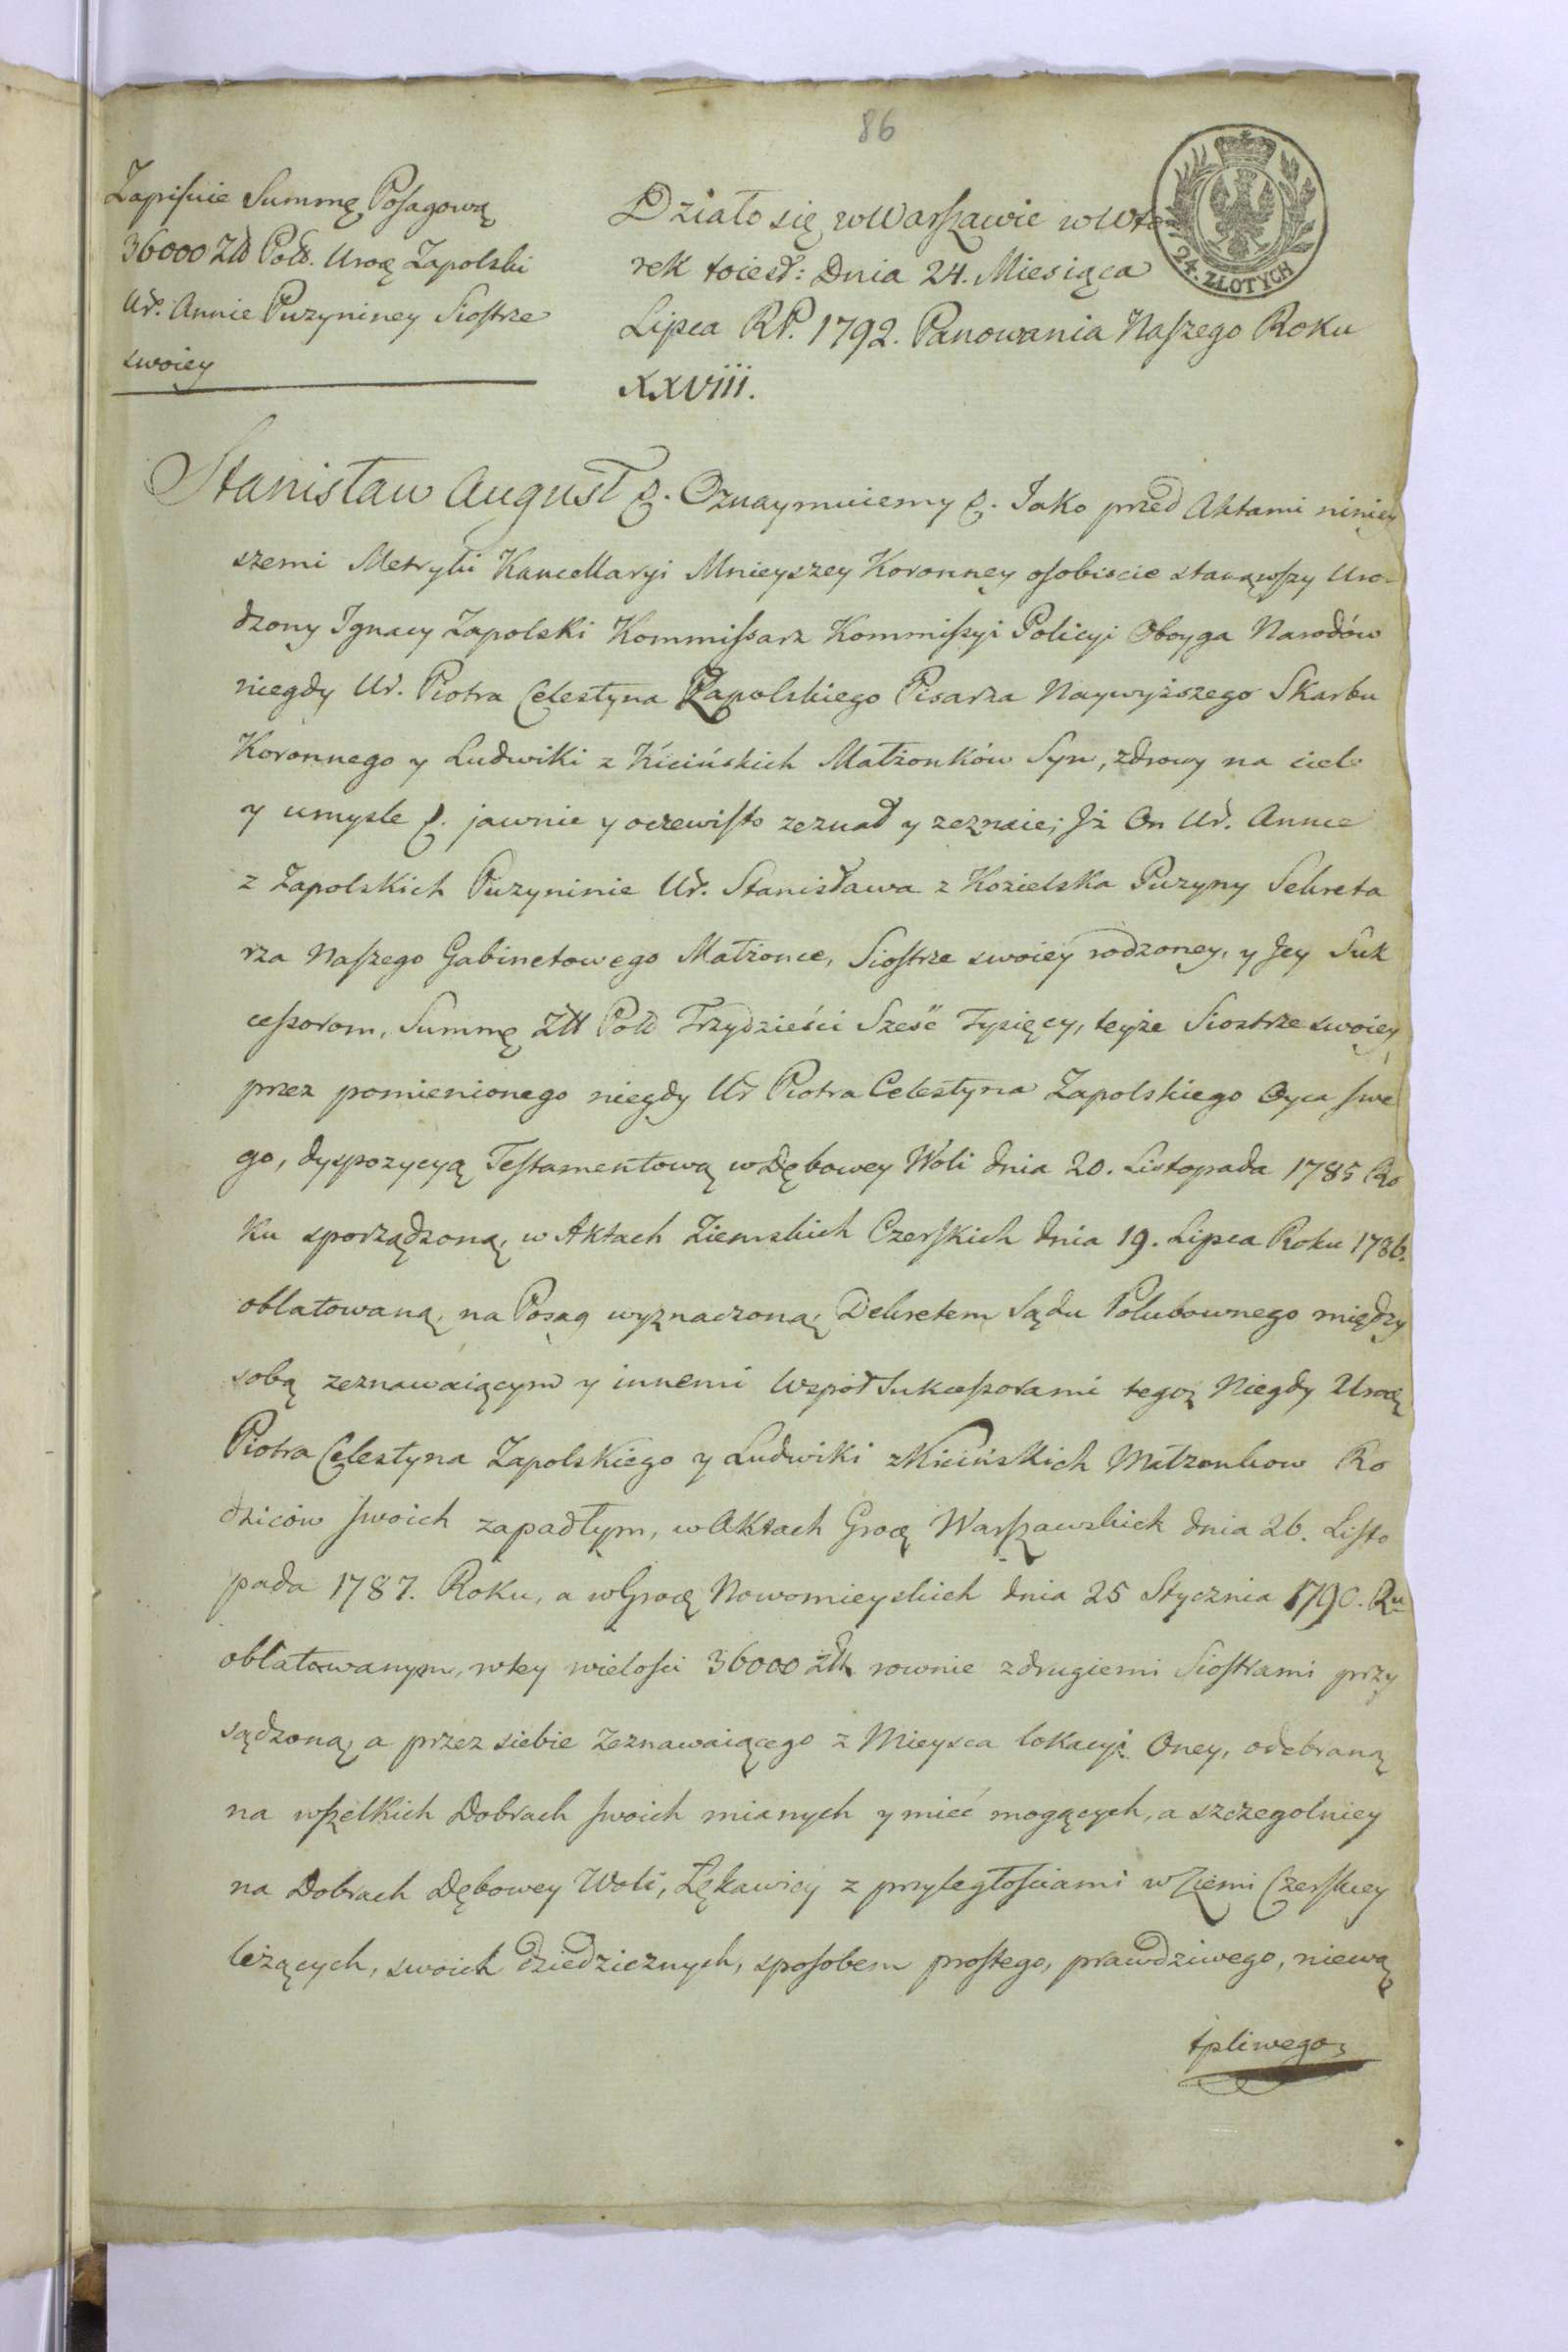 86
Zapisuie Summę Posagową
36000 Złł Poll. Uroę Zapolski
Ur. Annie Puzyniney Siostrze
swoiey
Działo się w Warszawie w Wto
rek toiest: Dnia 24. Miesiąca
Lipca RP. 1792. Panowania Naszego Roku
XXVIII.
24. ZŁOTYCH
Stanisław August &. Oznaymuiemy &. Jako przed Aktami niniey
szemi Metryki Kancellaryi Mnieyszey Koronney osobiscie stanąwszy Uro-
dzony Ignacy Zapolski Kommissarz Kommissyi Policyi Oboyga Narodów
niegdy Ur. Piotra Celestyna Zapolskiego Pisarza Naywyższego Skarbu
Koronnego y Ludwiki z Kicińskich Małżonków Syn, zdrowy na ciele
y umysle &. jawnie y oczewisto zeznał y zeznaie; Jż On Ur. Annie
z Zapolskich Puzyninie Ur. Stanisława z Kozielska Puzyny Sekreta
rza Naszego Gabinetowego Małżonce, Siostrze swoiey rodzoney, y Jey Suk
cessorom, Summę Złł Poll Trzydzieści Sześć Tysięcy, teyże Siostrze swoiey
przez pomienionego niegdy Ur Piotra Celestyna Zapolskiego Oyca swe
go, dyspozycyą Testamentową w Dębowey Woli dnia 20. Listopada 1785 Ro
ku sporządzoną, w Aktach Ziemskich Czerskich dnia 19. Lipca Roku 1786.
oblatowaną, na Posag wyznaczoną, Dekretem Sądu Polubownego między
sobą zeznawaiącym y innemi Wspoł Sukcessorami tegoż Niegdy Uroę
Piotra Celestyna Zapolskiego y Ludwiki z Kicińskich Małzonkow Ro
dziców swoich zapadłym, w Aktach Groę Warszawskich dnia 26. Listo
pada 1787. Roku, a w Groę Nowomieyskich dnia 25 Stycznia 1790. Ru
oblatowanym, w tey wielosci 36000 Złł rownie z drugiemi Siostrami przy
sądzoną, a przez siebie Zeznawaiącego z Mieysca lokacyi Oney, odebraną
na wszelkich Dobrach swoich mianych y mieć mogących, a szczegolniey
na Dobrach Dębowey Woli, Łękawicy z przyległościami w Ziemi Czerskiey
leżących, swoich dziedzicznych, sposobem prostego, prawdziwego, niewą
tpliwego,